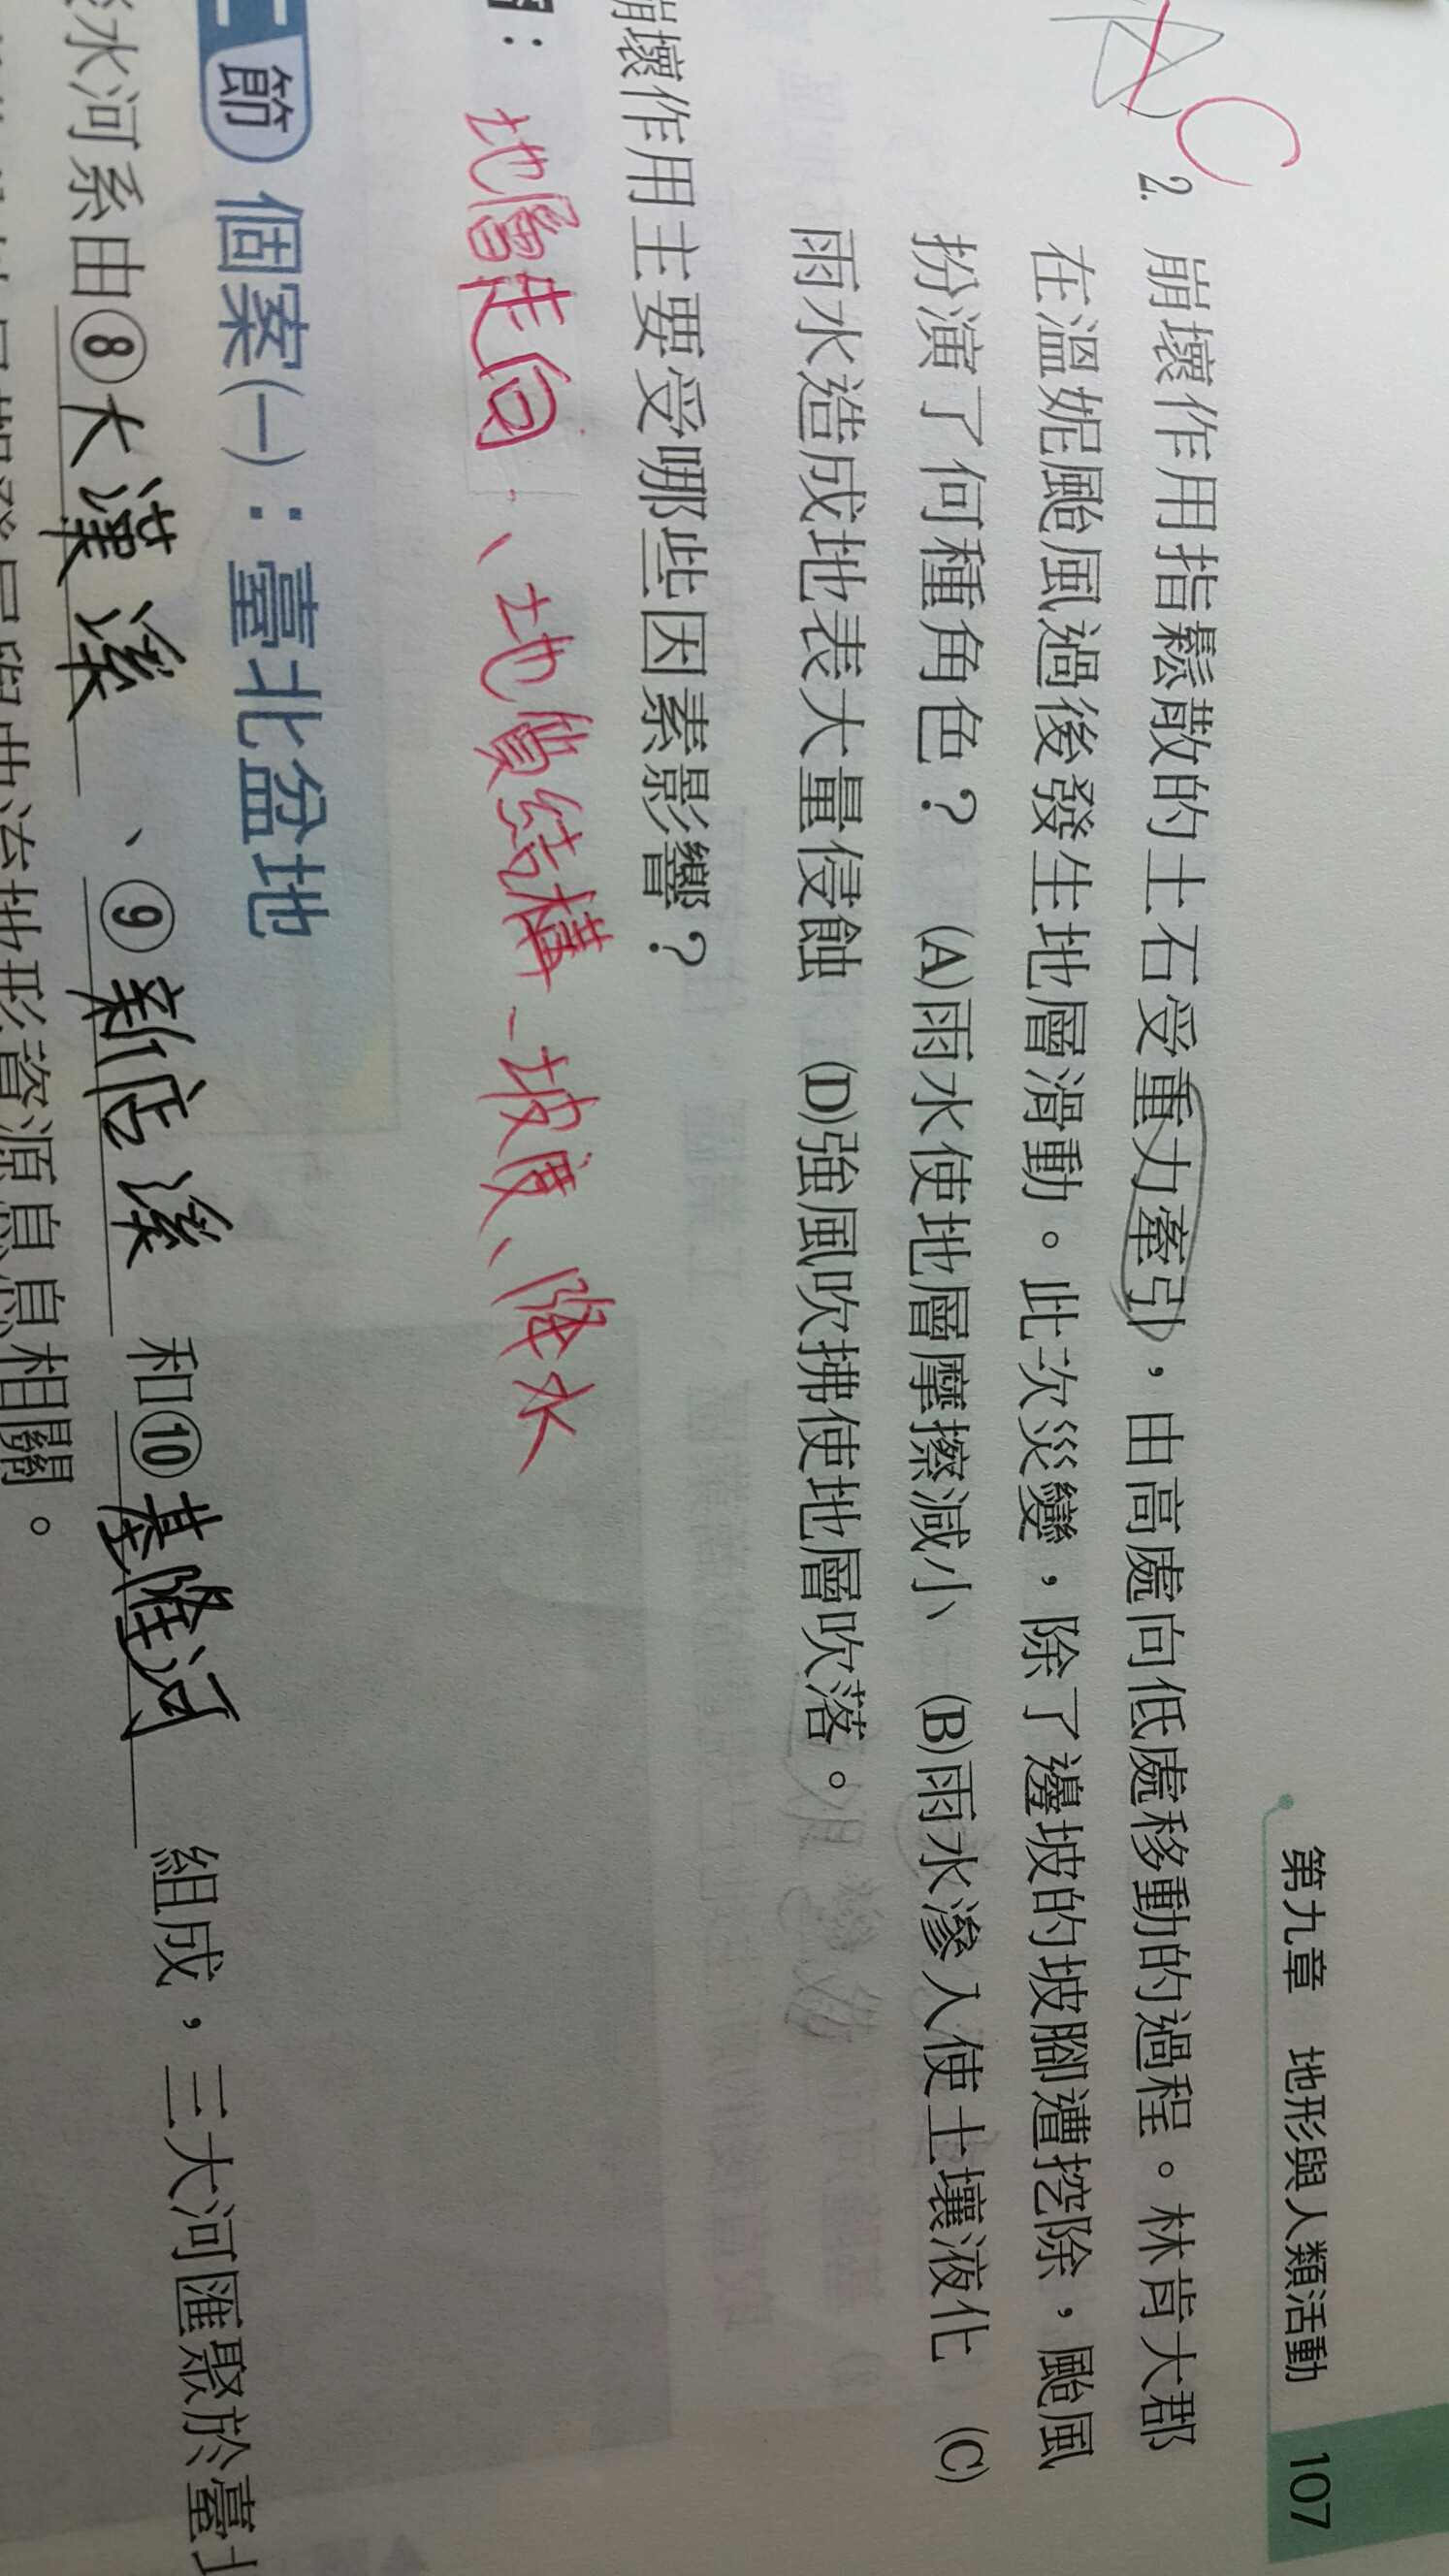 第九章 地形與人類活動 107
C
2. 崩壞作用指鬆散的土石受重力牽引，由高處向低處移動的過程。林肯大郡
在溫妮颱風過後發生地層滑動。此次災變，除了邊坡的坡腳遭挖除，颱風
扮演了何種角色？ (A)雨水使地層摩擦減小 (B)雨水滲入使土壤液化 (C)
雨水造成地表大量侵蝕 (D)強風吹拂使地層吹落。
崩壞作用主要受哪些因素影響？
：地層走向、地質結構、坡度、降水
節 個案(一)：臺北盆地
水河系由⑧大漢溪、⑨新店溪和⑩基隆河組成，三大河匯聚於臺
資源息息相關。